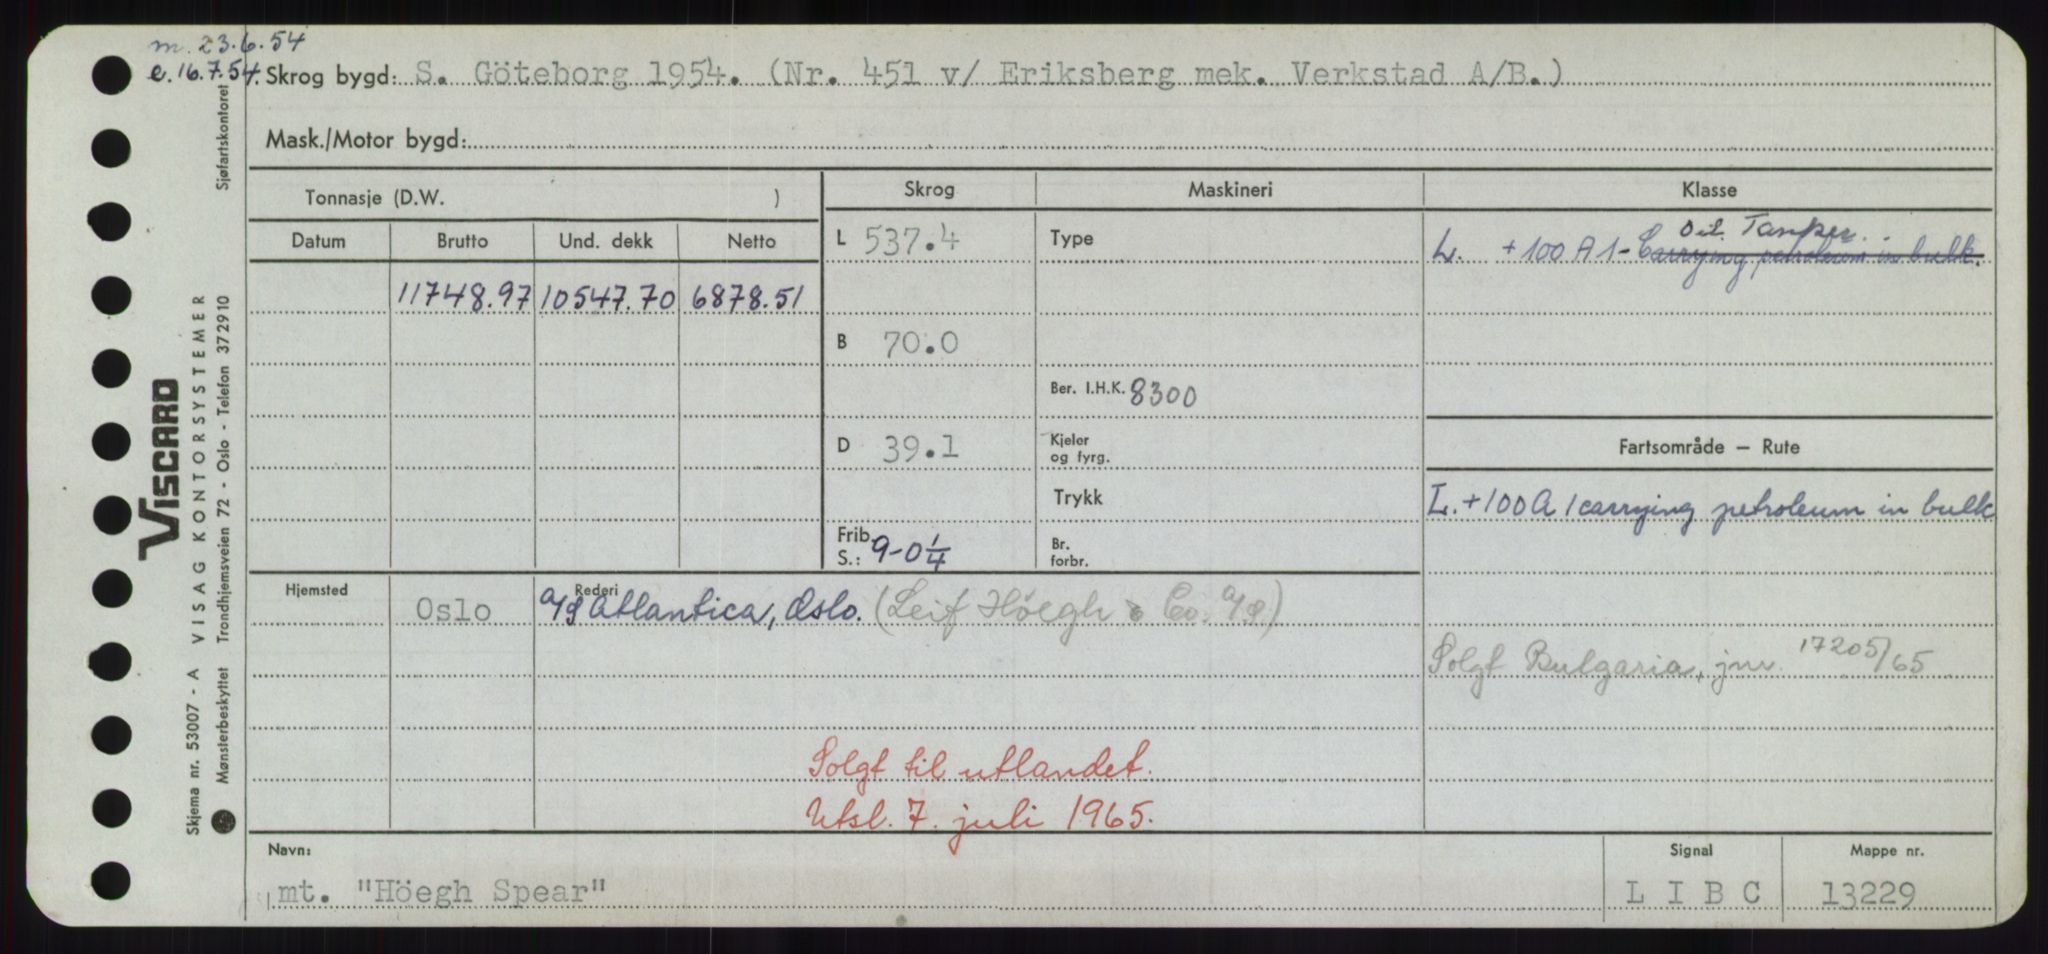 m. 23.6.54
e. 16.7.54.
Skrog bygd: S. Göteborg 1954. (Nr. 451 v/ Eriksberg mek. Verkstad A/B.)
Mask./Motor bygd:
Tonnasje (D.W. )
Skrog
Maskineri
Klasse
Datum
Brutto
Und. dekk
Netto
L 537.4
Type
Oil Tanker.
L. +100 A 1- Carrying petroleum in bulk.
11748.97 10547.70 6878.51
B 70.0
Ber. I.H.K. 8300
D 39.1
Kjeler
og fyrg.
Fartsområde — Rute
Trykk
L. +100 A 1 carrying petroleum in bulk
Frib.
S.: 9-0¼
Br.
forbr.
Hjemsted
Oslo
Rederi
A/S Atlantica, Oslo. (Leif Höegh & Co. A/S.)
Solgt Bulgaria, jnr. 17205/65
Solgt til utlandet.
Utsl. 7. juli 1965.
Navn:
mt. "Höegh Spear"
Signal
L I B C
Mappe nr.
13229
Sjøfartskontoret
VISCARD
VISAG KONTORSYSTEMER
Trondhjemsveien 72 - Oslo - Telefon 372910
Skjema nr. 53007 - A
Mønsterbeskyttet